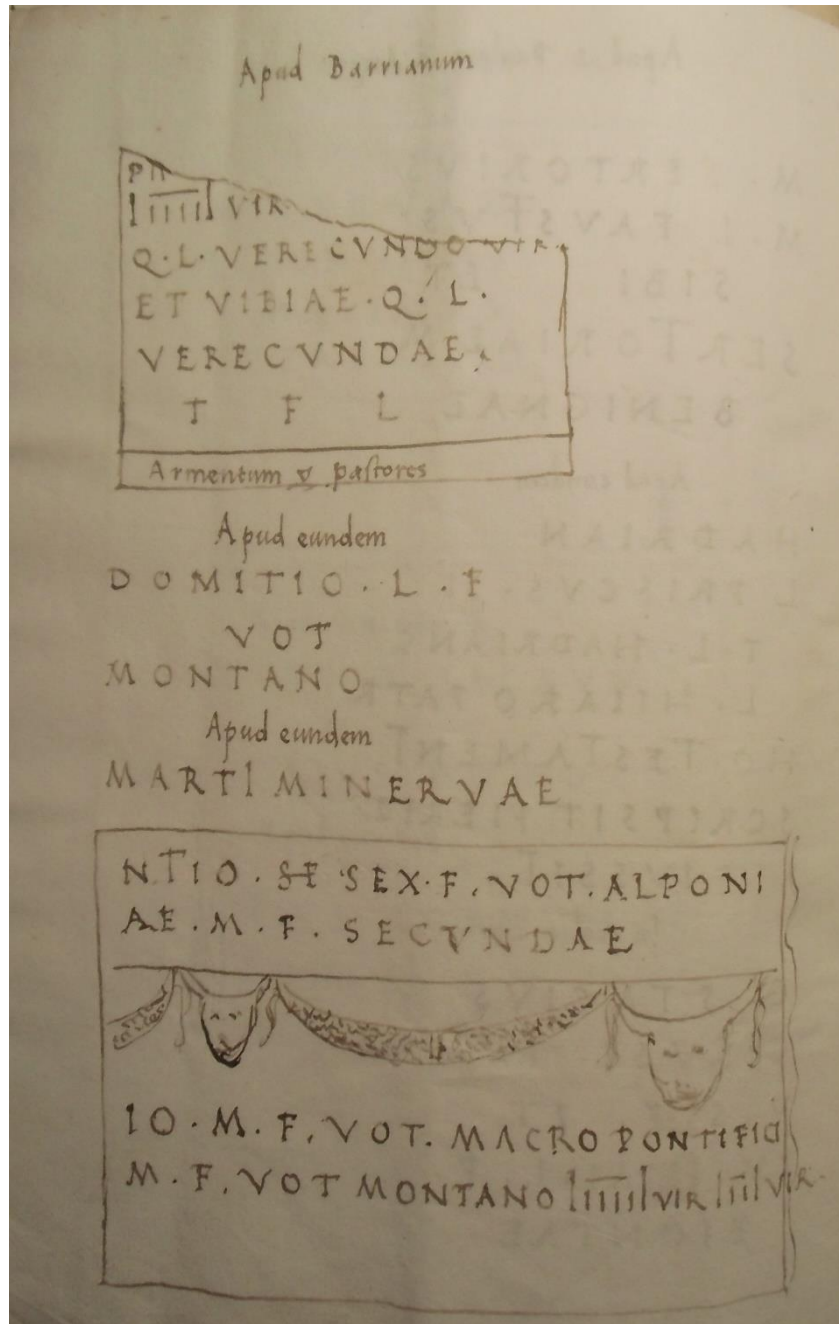 Apud Barrianum
PII
IIIIII VIR
Q. L. VERECVNDO VIR.
ET VIBIAE. Q. L.
VERECVNDAE.
T F L
Armentum & pastores
Apud eundem
DOMITIO. L. F
VOT
MONTANO
Apud eundem
MARTI MINERVAE
NTIO. SEX. F. VOT. ALPONI
AE. M. F. SECVNDAE
IO. M. F. VOT. MACRO PONTIFICI
M. F. VOT MONTANO IIIIII VIR IIII VIR.